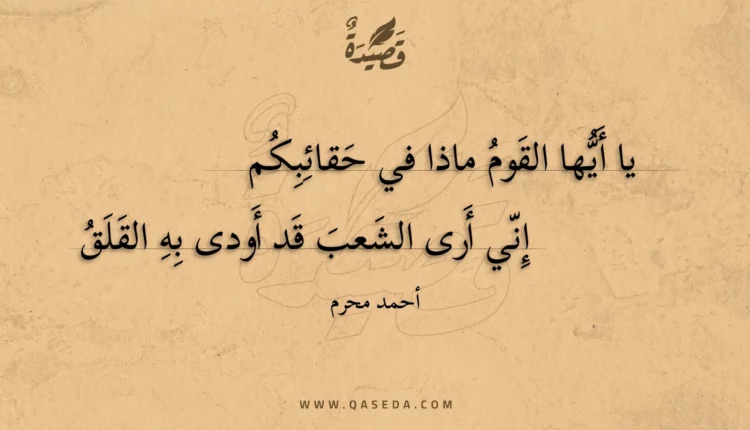 قَصِيدَةٌ
يا أَيُّها القَومُ ماذا في حَقائِبِكُم
إِنّي أَرى الشَعبَ قَد أَودى بِهِ القَلَقُ
أحمد محرم
WWW.QASEDA.COM